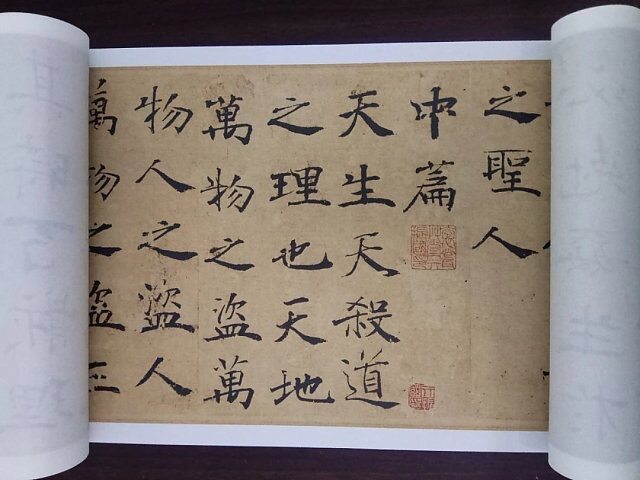 之聖人
中篇
天生天殺道
之理也天地
萬物之盜萬
物人之盜人
萬物之盜